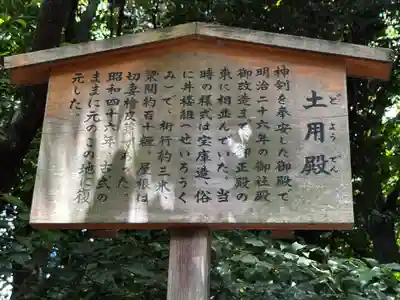 土用殿
どようでん
神剣を奉安した御殿で
明治二十六年の御社殿
御改造まで御正殿の
東に相並んでいた。当
時の様式は宝庫造(俗
に井楼組(せいろうく
み)で、桁行約三米、
梁間約百十糎、屋根は
切妻桧皮葺であった。
昭和四十六年、古式の
ままに元のこの地に復
元した。